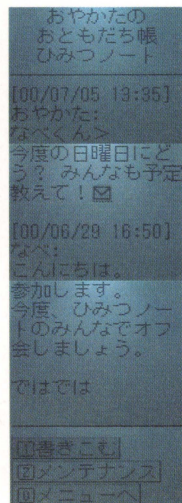 おやかたの
おともだち帳
ひみつノート
[00/07/05 13:35]
おやかた:
なべくん>
今度の日曜日にど
う? みんなも予定
教えて!✉
[00/06/29 16:50]
なべ:
こんにちは。
参加します。
今度、ひみつノー
トのみんなでオフ
会しましょう。
ではでは
[1]書きこむ
[2]メンテナンス
[0]メニューへ